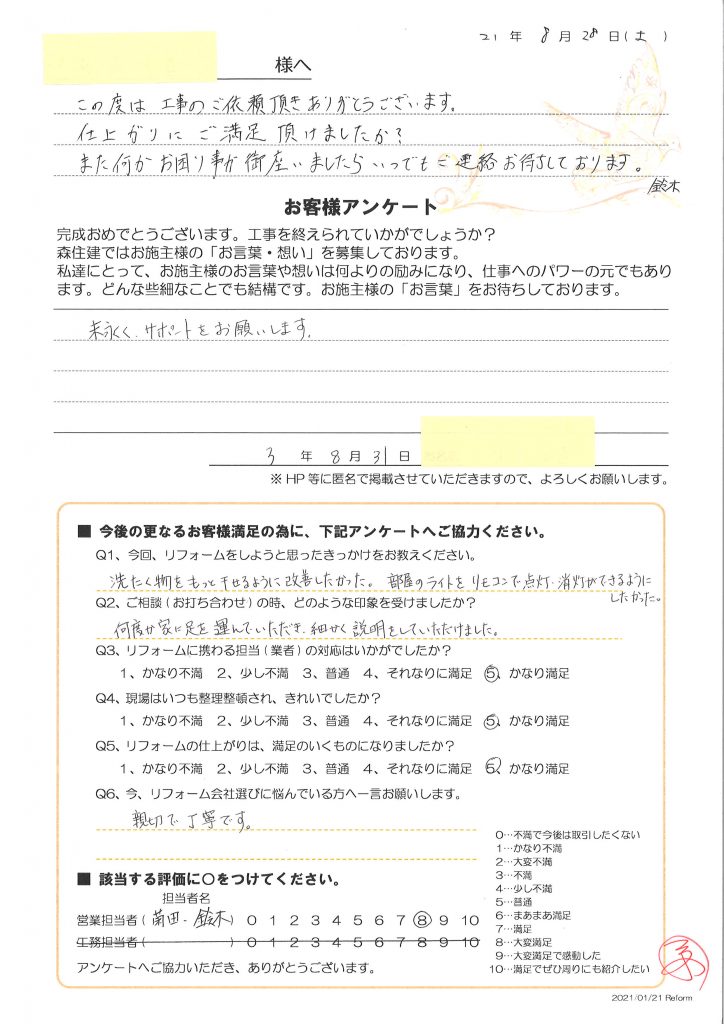 21 年 8 月 28 日(土)
様へ
この度は 工事のご依頼頂きありがとうございます。
仕上がりに ご満足 頂けましたか?
また何かお困り事が御座いましたらいつでもご連絡お待ちしております。
鈴木
お客様アンケート
完成おめでとうございます。工事を終えられていかがでしょうか?
森住建ではお施主様の「お言葉・想い」を募集しております。
私達にとって、お施主様のお言葉や想いは何よりの励みになり、仕事へのパワーの元でもあり
ます。どんな些細なことでも結構です。お施主様の「お言葉」をお待ちしております。
末永く、サポートをお願いします。
3 年 8 月 31 日
※HP等に匿名で掲載させていただきますので、よろしくお願いします。
■ 今後の更なるお客様満足の為に、下記アンケートへご協力ください。
Q1、今回、リフォームをしようと思ったきっかけをお教えください。
洗たく物をもっと干せるように改善したかった。 部屋のライトをリモコンで点灯・消灯ができるように
したかった。
Q2、ご相談(お打ち合わせ)の時、どのような印象を受けましたか?
何度か家に足を運んでいただき、細かく説明をしていただけました。
Q3、リフォームに携わる担当(業者)の対応はいかがでしたか?
1、かなり不満 2、少し不満 3、普通 4、それなりに満足 5、かなり満足
Q4、現場はいつも整理整頓され、きれいでしたか?
1、かなり不満 2、少し不満 3、普通 4、それなりに満足 5、かなり満足
Q5、リフォームの仕上がりは、満足のいくものになりましたか?
1、かなり不満 2、少し不満 3、普通 4、それなりに満足 5、かなり満足
Q6、今、リフォーム会社選びに悩んでいる方へ一言お願いします。
親切で丁寧です。
■ 該当する評価に○をつけてください。
担当者名
営業担当者(菊田・鈴木) 0 1 2 3 4 5 6 7 8 9 10
工務担当者( ) 0 1 2 3 4 5 6 7 8 9 10
アンケートへご協力いただき、ありがとうございます。
0…不満で今後は取引したくない
1…かなり不満
2…大変不満
3…不満
4…少し不満
5…普通
6…まあまあ満足
7…満足
8…大変満足
9…大変満足で感動した
10…満足でぜひ周りにも紹介したい
2021/01/21 Reform